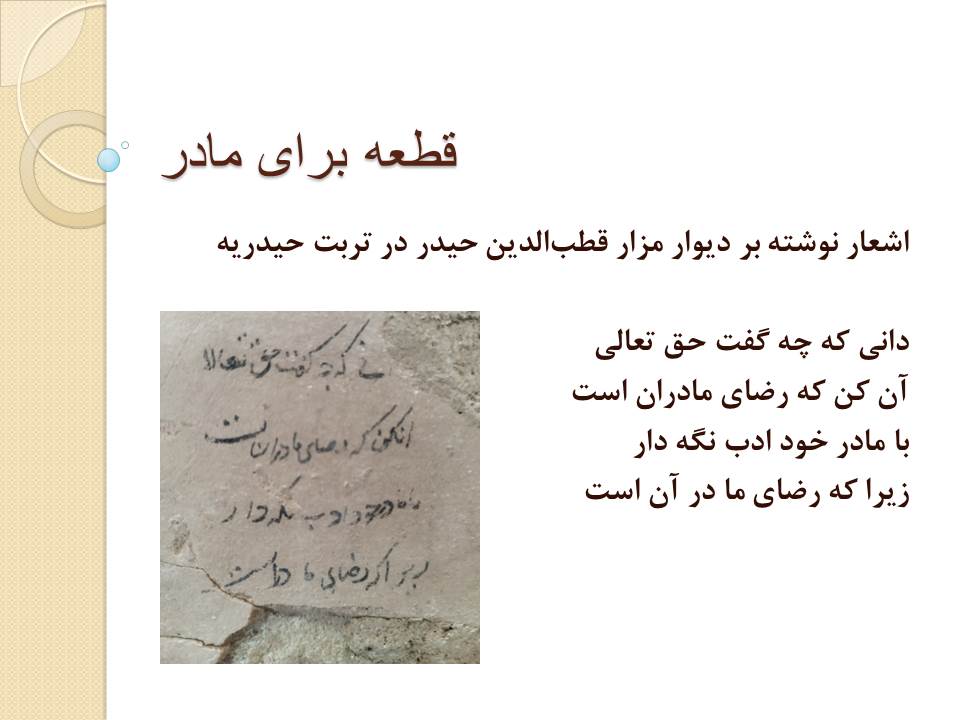 قطعه برای مادر
اشعار نوشته بر دیوار مزار قطب‌الدین حیدر در تربت حیدریه
دانی که چه گفت حق تعالی
آن کن که رضای مادران است
با مادر خود ادب نگه دار
زیرا که رضای ما در آن است
نی که چه گفت حق تعالا
انکن که رضای مادران است
با مادر خود ادب نگه دار
که رضای ما